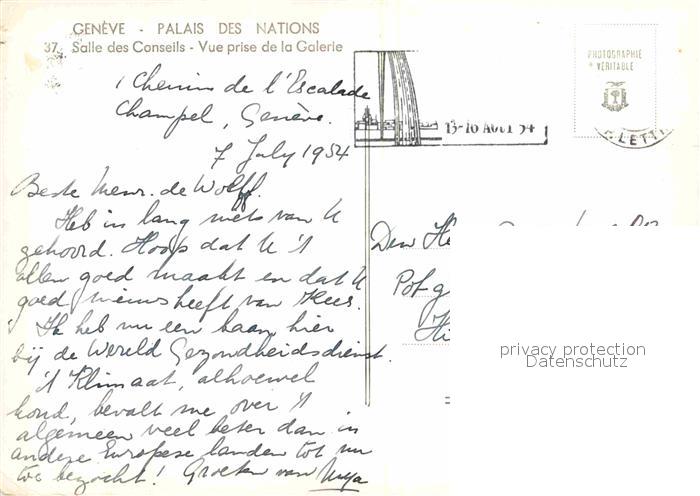 GENÈVE - PALAIS DES NATIONS
37. Salle des Conseils - Vue prise de la Galerie
1 Chemin de l'Escalade
Champel, Genève.
7 July 1954
Beste Menr. de Wolff.
Heb in lang niets van U
gehoord. Hoop dat U 't
allen goed maakt en dat U
goed nieuws heeft van Kees.
Ik heb nu een baan hier
bij de Wereld Gezondheidsdienst.
't Klimaat, alhoewel
koud, bevalt me over 't
algemeen veel beter dan in
andere Europese landen tot nu
toe bezocht! Groeten van
13-16 AOUT 54
PHOTOGRAPHIE
VÉRITABLE
LETT
Den He
Pot g
Hi
privacy protection
Datenschutz